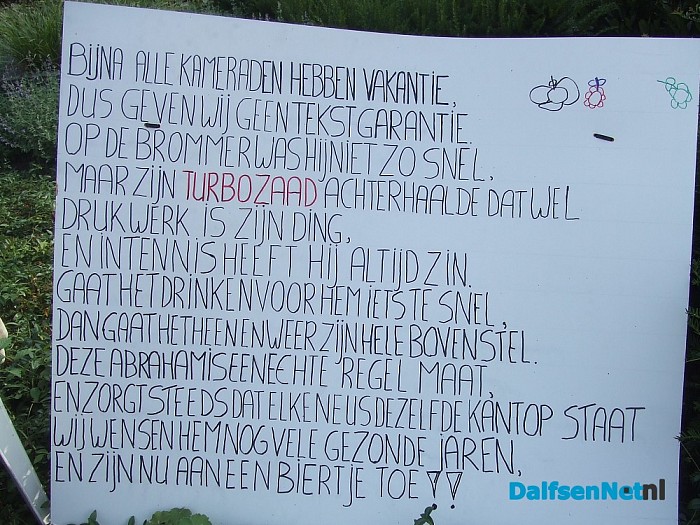 BIJNA ALLE KAMERADEN HEBBEN VAKANTIE,
DUS GEVEN WIJ GEEN TEKSTGARANTIE.
OP DE BROMMER WAS HIJ NIET ZO SNEL,
MAAR ZIJN TURBOZAAD ACHTERHAALDE DAT WEL
DRUKWERK IS ZIJN DING,
EN IN TENNIS HEEFT HIJ ALTIJD ZIN.
GAAT HET DRINKEN VOOR HEM IETS TE SNEL,
DAN GAAT HET HEEN EN WEER ZIJN HELE BOVENSTEL.
DEZE ABRAHAM IS EEN ECHTE REGELMAAT,
EN ZORGT STEEDS DAT ELKE NEUS DEZELFDE KANT OP STAAT
WIJ WENSEN HEM NOG VELE GEZONDE JAREN,
EN ZIJN NU AAN EEN BIERTJE TOE!!
DalfsenNet.nl